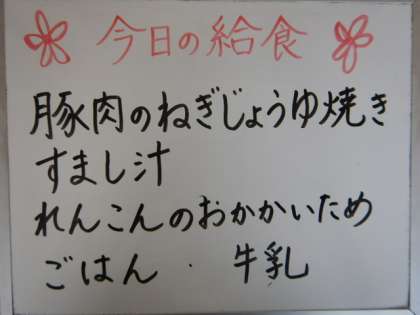 今日の給食
豚肉のねぎじょうゆ焼き
すまし汁
れんこんのおかかいため
ごはん・牛乳